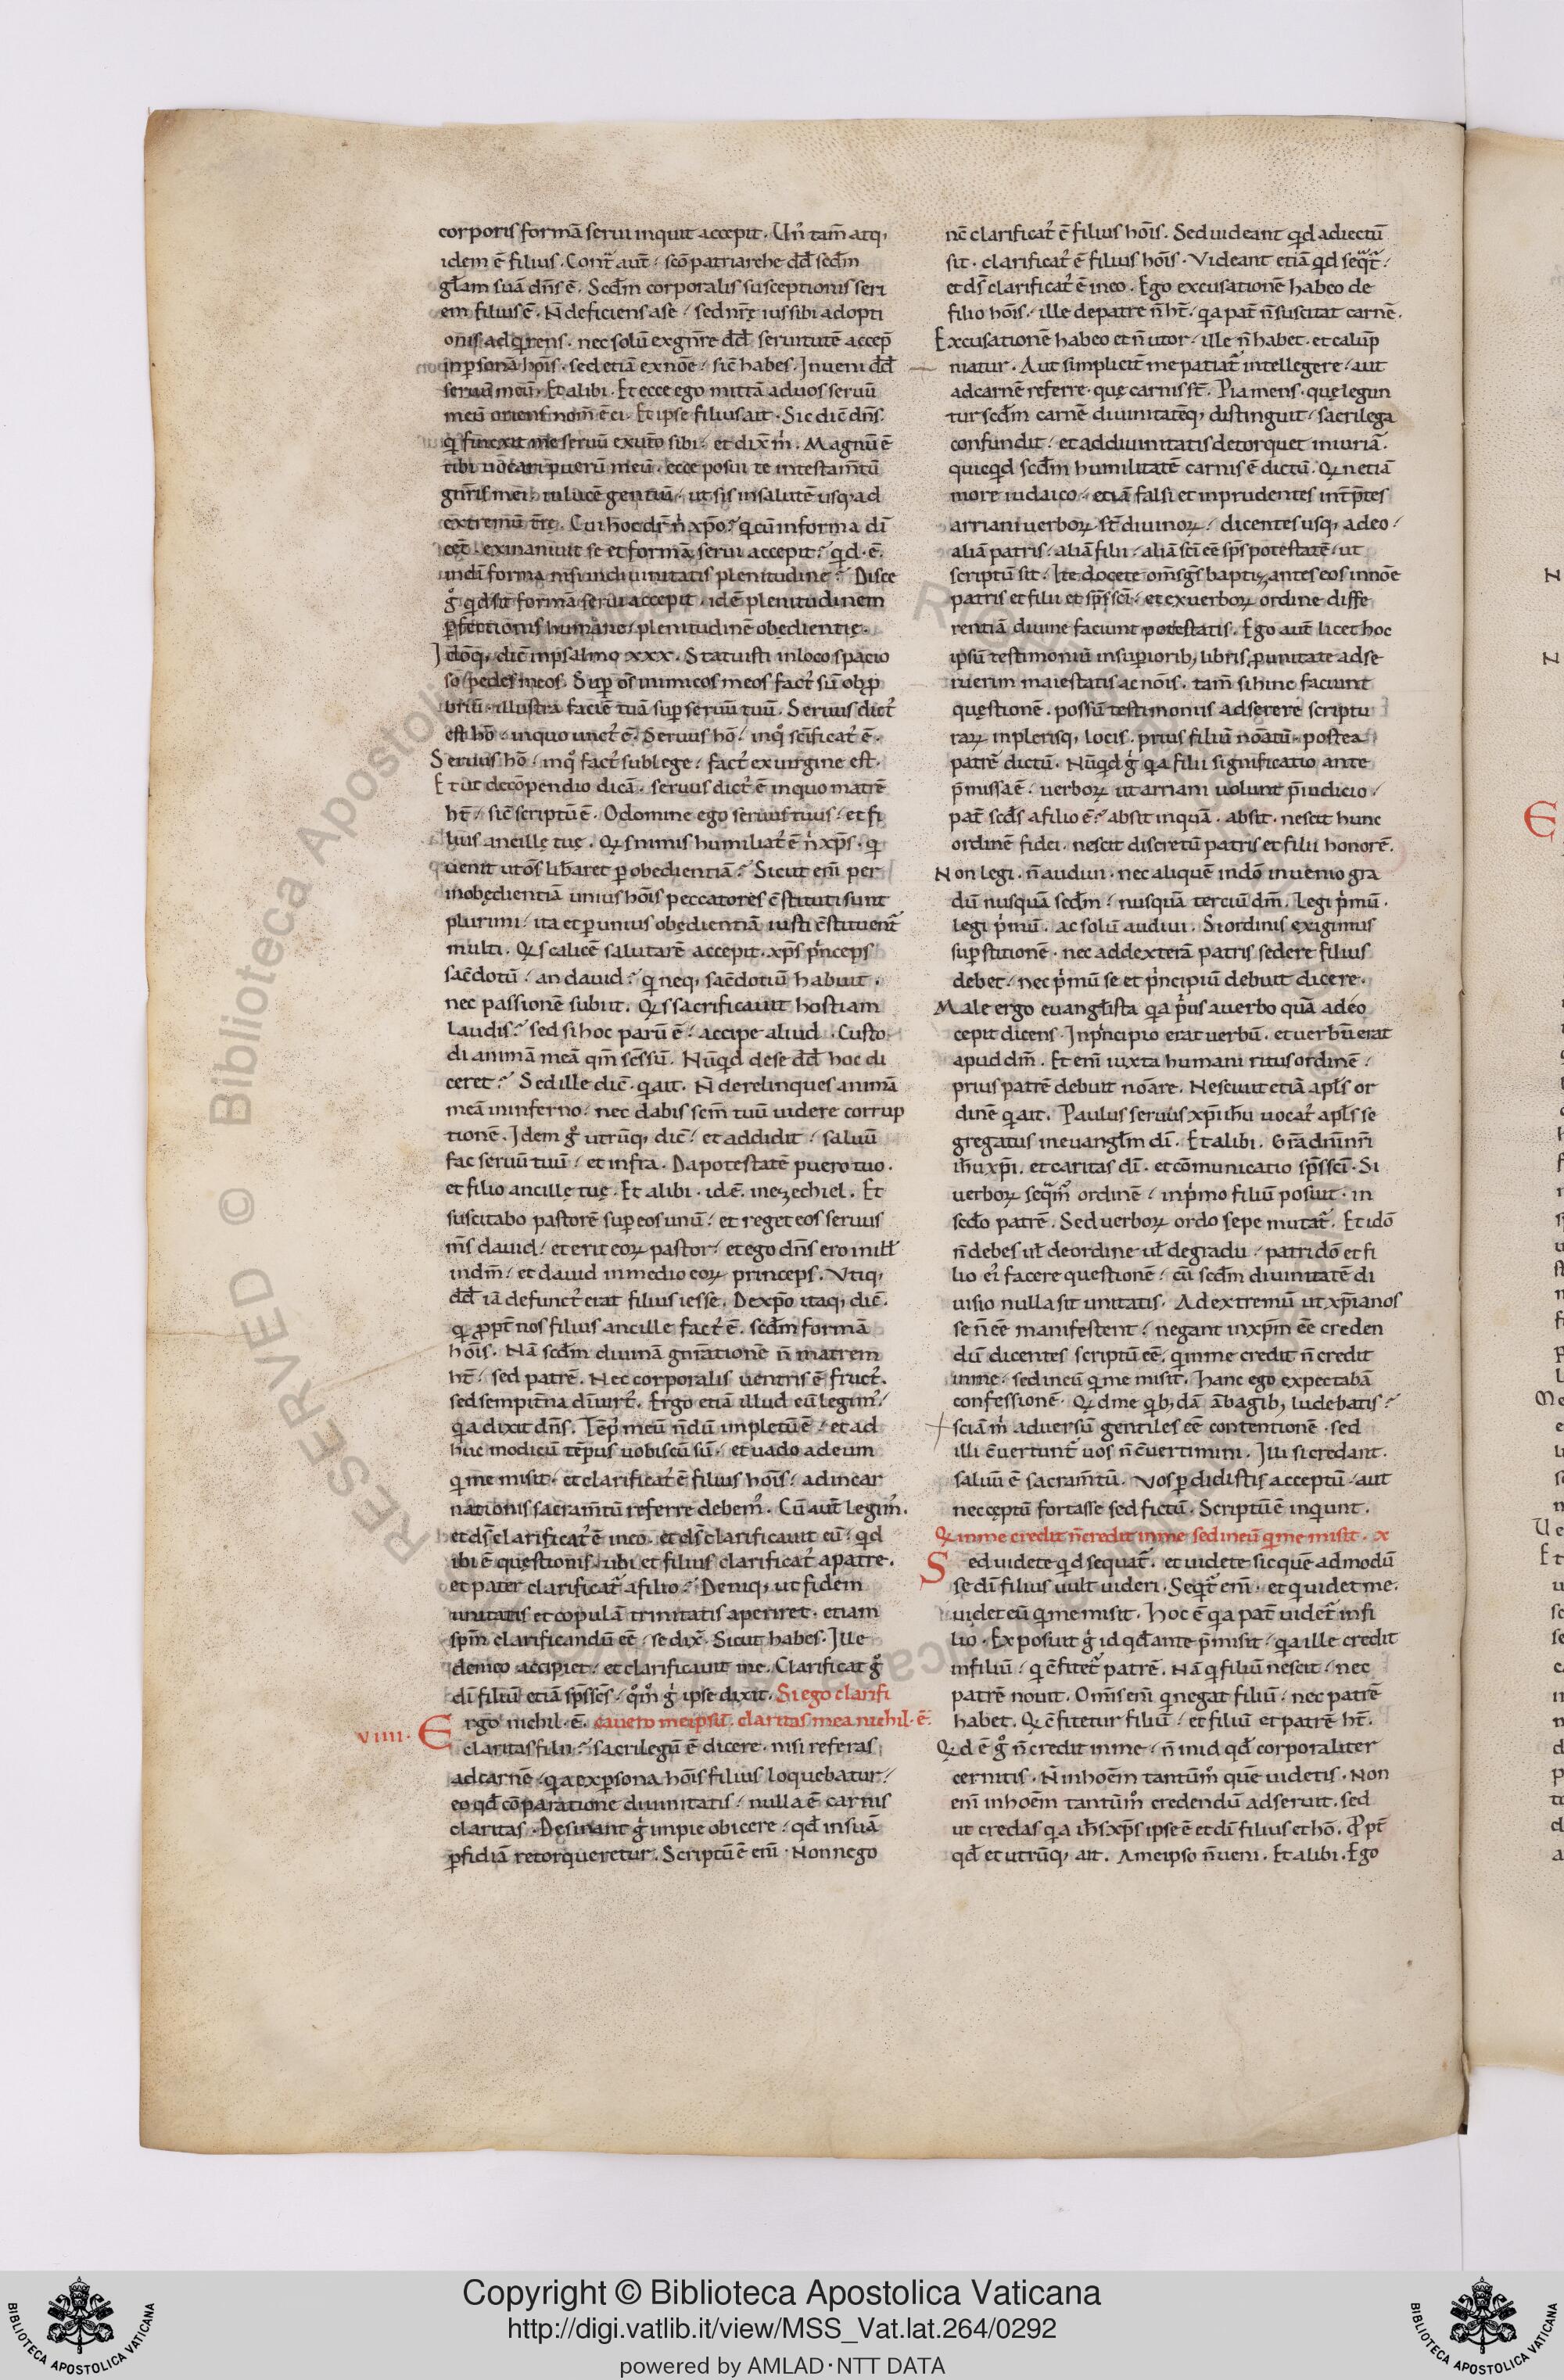 corporis formā serui inquit accepit. Un' tam̄ atq;
idem ē filius. Cont̄ aut̄ scō patriarche dd̄ scdm̄
gl̄am suā dn̄s ē. Scdm̄ corporalis susceptionis seri
em filius ē. N̄ deficiens a se sed nr̄ę ius sibi adopti
onis adqrens. nec solū ex gn̄re dd̄ seruitutē accep̄
in p̱sona hōis. sed etiā ex nōe sic̄ habes. Inueni dd̄
seruū meū. Et alibi. Et ecce ego mittā ad uos seruū
meū oriens nom̄ ē ei. Et ipse filius ait. Sic dic̄ dn̄s.
q finxit me seruū ex ut̄o sibi. et dix̄ m'. Magnū ē
tibi uocari puerū meū. ecce posui te in testam̄tū
gn̄ris mei. in lucē gentiū. ut sis in salutē usq; ad
extremū tr̄ę. Cui hoc dr̄ n' xp̄o? q cū in forma dī
eēt. exinaniuit se et formā serui accepit? qd. ē.
in dī forma nisi in diuinitatis plenitudine? Disce
g̊ qd sit formā serui accepit. id ē plenitudinem
p̱fectionis humanę plenitudinē obedientię.
Idōq; dic̄ in psalmo xxx. Statuisti in loco spacio
so pedes meos. Sup̱ om̄s inimicos meos fact' sū obp̱
briū. illustra faciē tuā sup̱ seruū tuū. Seruus dict'
est hō in quo unct' ē. Seruus hō inq̊ sc̄ificat' ē.
Seruus hō inq̊ fact' sub lege fact' ex uirgine est.
Et ut de cōpendio dicā. seruus dict' ē in quo matrē
ht̄ sic̄ scriptū ē. O domine ego seruus tuus et fi
lius ancillę tuę. Qs nimis humiliat' ē n' xp̄s. q
uenit ut om̄s lib̄aret p̱ obedientiā? Sicut eni per
inobedientiā unius hōis peccatores c̄stituti sunt
plurimi ita et p̱ unius obedientiā iusti c̄stituent̄
multi. Qs calicē salutarē accepit. xp̄s p'nceps
sac̄dotū an dauid? q neq; sac̄dotiū habuit.
nec passionē subiit. Qs sacrificauit hostiam
laudis? sed si hoc parū ē accipe aliud. Custo
di animā meā qm̄ sc̄s sū. Nūqd de se dd̄ hoc di
ceret? Sed ille dic̄. q ait. N̄ derelinques animā
meā in inferno nec dabis sc̄m tuū uidere corrup
tionē. Idem g̊ utrūq; dic̄ et addidit saluū
fac seruū tuū et infra. Da potestatē puero tuo.
et filio ancillę tuę. Et alibi. id ē. in ezechiel. Et
suscitabo pastorē sup̱ eos unū et reget eos seruus
m̄s dauid et erit eoꝝ pastor et ego dn̄s ero ill̄
in dm̄ et dauid in medio eoꝝ princeps. Vtiq;
dd̄ iā defunct' erat filius iesse. De xp̄o itaq; dic̄.
q ꝓpt̄ nos filius ancille fact' ē. scdm̄ formā
hōis. Nā scdm̄ diuinā gn̄ationē n̄ matrem
ht̄ sed patrē. Nec corporalis uentris ē fruct'.
sed sempit̄na dī uirt'. Ergo etiā illud cū legim'
qa dixit dn̄s. Tēp' meū n̄dū impletū ē et ad
huc modicū tēpus uobiscū sū. et uado ad eum
q me misit. et clarificat' ē filius hōis ad incar
nationis sacram̄tū referre debem'. Cū aut̄ legim'.
et ds̄ clarificat' ē in eo. et ds̄ clarificauit eū qd
ibi ē quęstionis. ubi et filius clarificat' a patre.
et pater clarificat̄ a filio? Deniq; ut fidem
unitatis et copulā trinitatis aperiret. etiam
sp̄m clarificandū eē se dix̄. Sicut habes. Ille
de meo accipiet et clarificauit me. Clarificat g̊
dī filiū etiā sp̄s sc̄s q̊m̊ g' ipse dixit. Si ego clarifi
Ergo nichil. ē. cauero me ipsū. claritas mea nichil. ē.
viiii.
claritas filii? sacrilegū ē dicere. nisi referas
ad carnē qa ex p̱sona hōis filius loquebatur
eo qd̄ cōparatione diuinitatis nulla ē carnis
claritas. Desinant g' impie obicere qd̄ in suā
p̱fidiā retorqueretur. Scriptū ē eni. Non nego
nc̄ clarificat' ē filius hōis. Sed uideant qd adiectū
sit. clarificat' ē filius hōis. Videant etiā qd seqt̄
et ds̄ clarificat' ē in eo. Ego excusationē habeo de
filio hōis ille de patre n̄ ht̄ qa pat̄ n̄ suscitat carnē.
Excusationē habeo et n̄ utor ille n̄ habet. et calūp̄
niatur. Aut simplicit̄ me patiat̄ intellegere aut
ad carnē referre. quę carnis st̄. Pia mens. quę legun
tur scdm̄ carnē diuinitatēq; distinguit sacrilega
confundit et ad diuinitatis detorquet iniuriā.
quicqd scdm̄ humilitatē carnis ē dictū. Qn etiā
more iudaico etiā falsi et inprudentes int̄p̄tes
arriani uerboꝝ st̄ diuinoꝝ dicentes usq; adeo
aliā patris aliā filii aliā sc̄i eē sp̄s potestatē ut
scriptū sit. Ite docete om̄s gs̄ baptizantes eos in nōe
patris et filii et sp̄s sc̄i et ex uerboꝝ ordine diffe
rentiā diuine faciunt potestatis. Ego aut̄ licet hoc
ipsū testimoniū in sup̱iorib; libris p̱ unitate adse
ruerim maiestatis ac nōis. tam̄ si hinc faciunt
quęstionē. possū testimoniis adserere scriptu
raꝝ in plerisq; locis. prius filiū nōatū. postea
patrē dictū. Nūqd g' qa filii significatio ante
p̄missa ē uerboꝝ ut arriani uolunt p̄iudicio
pat̄ scds̄ a filio ē? absit inquā. absit. nescit hunc
ordinē fides. nescit discretū patris et filii honorē.
Non legi. n̄ audiui. nec aliquē in dō inuenio gra
dū nusquā scdm̄ nusquā terciū dm̄. Legi p'mū.
legi p'mū. ac solū audiui. Si ordinis exigimus
sup̱stitionē. nec ad dexterā patris sedere filius
debet nec p'mū se et p'ncipiū debuit dicere.
Male ergo euangl̄ista qa p'us a uerbo quā a deo
cepit dicens. In p'ncipio erat uerbū. et uerbū erat
apud dm̄. Et eni iuxta humani ritus ordinē
prius patrē debuit nōare. Nesciuit etiā apl̄s or
dinē q ait. Paulus seruus xp̄i ih̄u uocat' apl̄s se
gregatus in euangl̄m dī. Et alibi. Gr̄a dn̄i nr̄i
ih̄u xp̄i. et caritas dī. et cōmunicatio sp̄s sc̄i. Si
uerboꝝ seqm̊ ordinē in p'mo filiū posuit. in
scdo patrē. Sed uerboꝝ ordo sepe mutat̄. Et idō
n̄ debes ul̄ de ordine ul̄ de gradu patri dō et fi
lio ei' facere questionē cū scdm̄ diuinitatē di
uisio nulla sit unitatis. Ad extremū ut xp̄ianos
se n̄ eē manifestent negant in xp̄m eē creden
dū dicentes scriptū eē. q in me credit n̄ credit
in me sed in eū q me misit. Hanc ego expectabā
confessionē. Qd me qb;dā ābagib; ludebatis?
sciā m' aduersū gentiles eē contentionē. sed
illi c̄uertunt̄ uos n̄ c̄uertimini. Illi si credant.
saluū ē sacram̄tū. Vos p̱didistis acceptū. aut
nec cęptū fortasse sed fictū. Scriptū ē inqunt.
Q in me credit n̄ credit in me sed in eū q me misit. x
Sed uidete qd sequat̄. et uidete sic quē admodū
se dī filius uult uideri. Seqt̄ eni. et q uidet me.
uidet eū q me misit. Hoc ē qa pat̄ uidet̄ in fi
lio. Exposuit g' id qd̄ ante p̄misit qa ille credit
in filiū q c̄fitet̄ patrē. Nā q filiū nescit nec
patrē nouit. Om̄is eni q negat filiū nec patrē
habet. Q c̄fitetur filiū et filiū et patrē ht̄.
Qd ē g̊ n̄ credit in me n̄ in id qd̄ corporaliter
cernitis. N̄ in hoēm tantūm̊ quē uidetis. Non
eni in hoēm tantūm̊ credendū adseruit. sed
ut credas qa ih̄s xp̄s ipse ē et dī filius et hō. Ꝓpt̄
qd̄ et utrūq; ait. A me ipso n̄ ueni. Et alibi. Ego
RESERVED © Biblioteca Apostolica
Copyright © Biblioteca Apostolica Vaticana
http://digi.vatlib.it/view/MSS_Vat.lat.264/0292
powered by AMLAD·NTT DATA
BIBLIOTECA APOSTOLICA VATICANA
BIBLIOTECA APOSTOLICA VATICANA